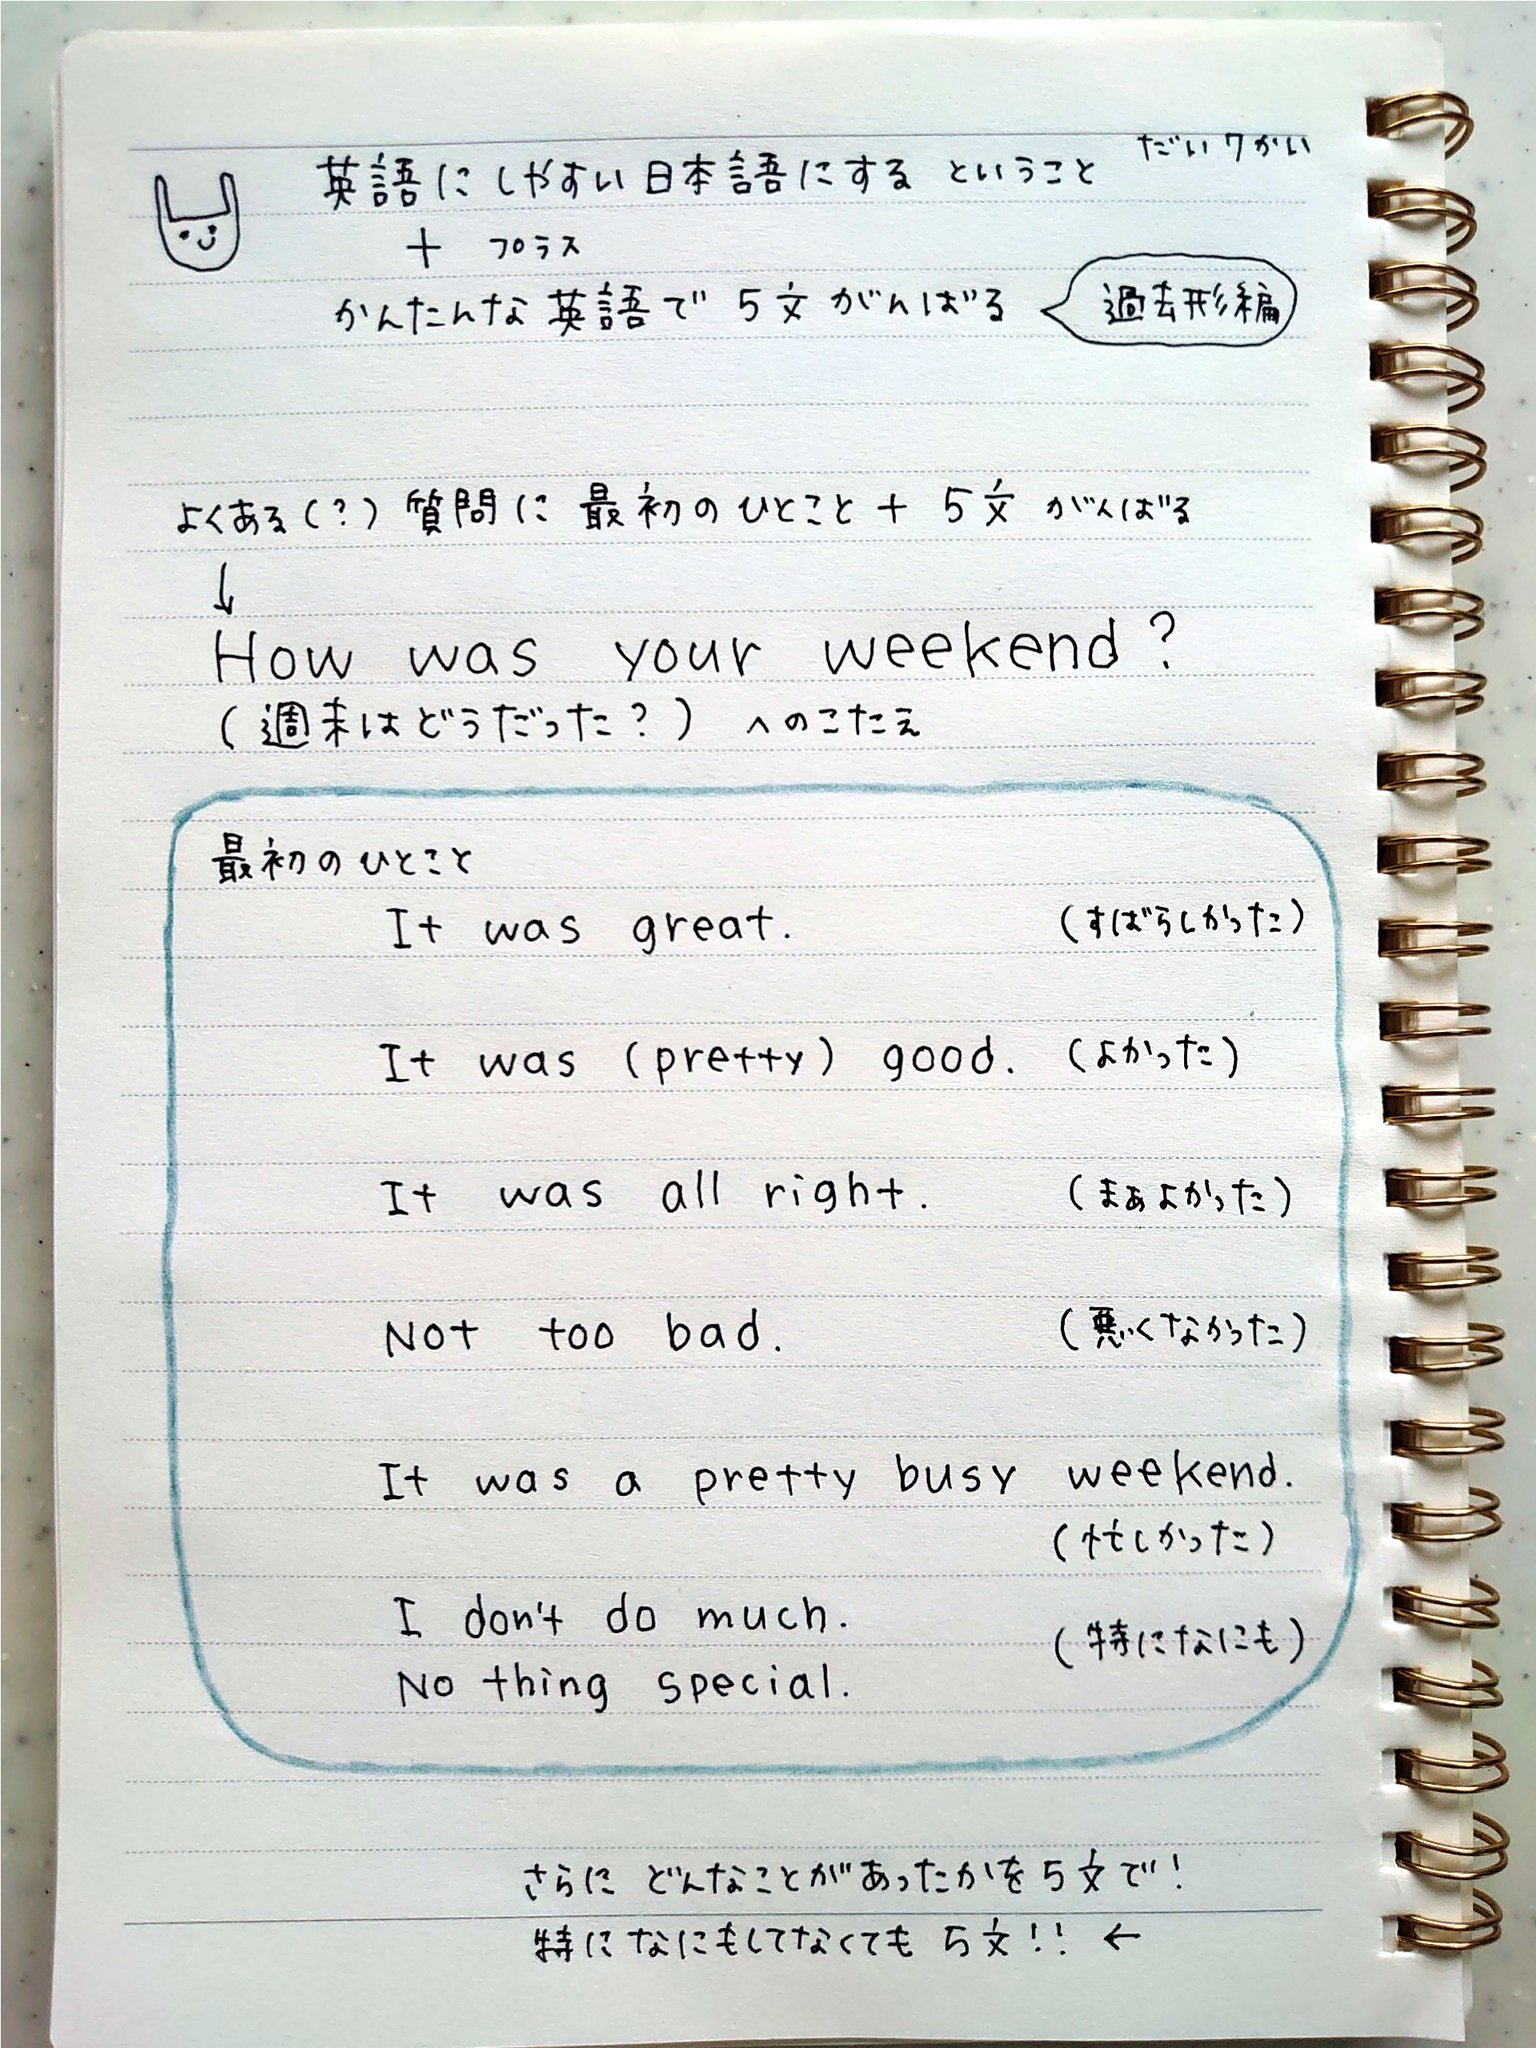 だい7かい
英語にしやすい日本語にする ということ
+ プラス
かんたんな英語で 5文 がんばる
過去形編
よくある(?)質問に 最初のひとこと + 5文 がんばる
↓
How was your weekend?
(週末はどうだった?) へのこたえ
最初のひとこと
It was great. (すばらしかった)
It was (pretty) good. (よかった)
It was all right. (まぁよかった)
Not too bad. (悪くなかった)
It was a pretty busy weekend.
(忙しかった)
I don't do much.
(特になにも)
No thing special.
さらに どんなことがあったかを5文で!
特になにもしてなくても 5文!! ←